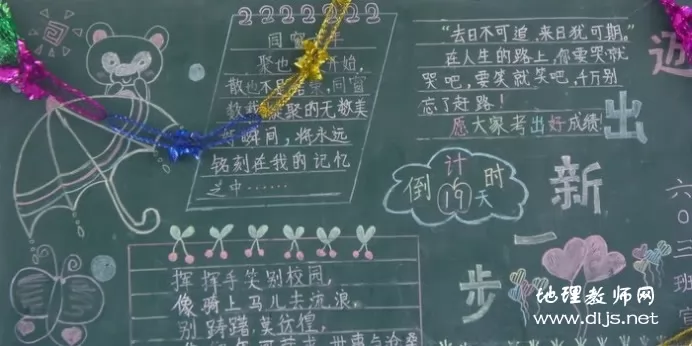 同窗
聚也 始,
散也不是结束,同窗
数载凝聚的无数美
好瞬间,将永远
铭刻在我的记忆
之中……
“去日不可追,来日犹可期。”
在人生的路上,你要哭就
哭吧,要笑就笑吧,千万别
忘了赶路!
愿大家考出好成绩!
倒计时
19天
迈出新一步
六〇二班宣
挥挥手笑别校园,
像骑上马儿去流浪,
别踌躇,莫彷徨,
地理教师网
www.dljs.net